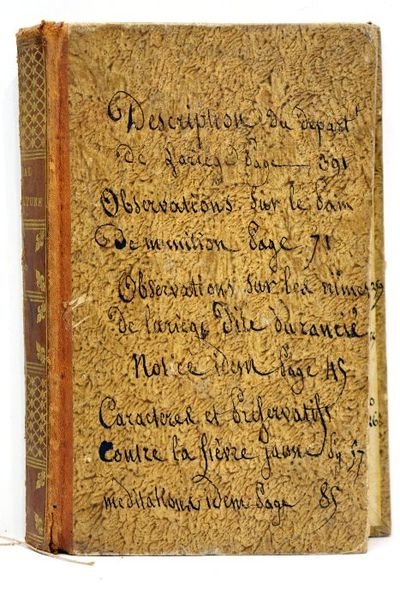 Description du depart^t
de lariege Page — 391
Observations sur le Pain
De munition Page 71
Observations sur les mines
De lariege dite du rancié
Notice idem Page 45
Caracteres et Préservatifs
contre la fièvre jaune Pg 57
meditations idem Page 85